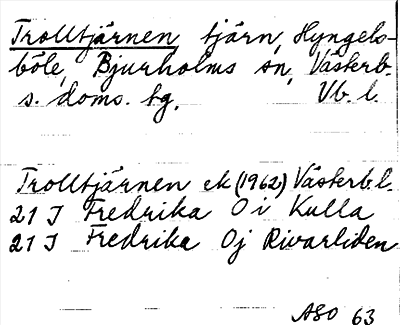 Trolltjärnen, tjärn, Hyngels-
böle, Bjurholms sn, Västerb.
s. doms. tg, Vb. l.
Trolltjärnen ek (1962) Västerb. l.
21 J Fredrika 0 i Kulla
21 J Fredrika 0 j Rivarliden
ASO 63